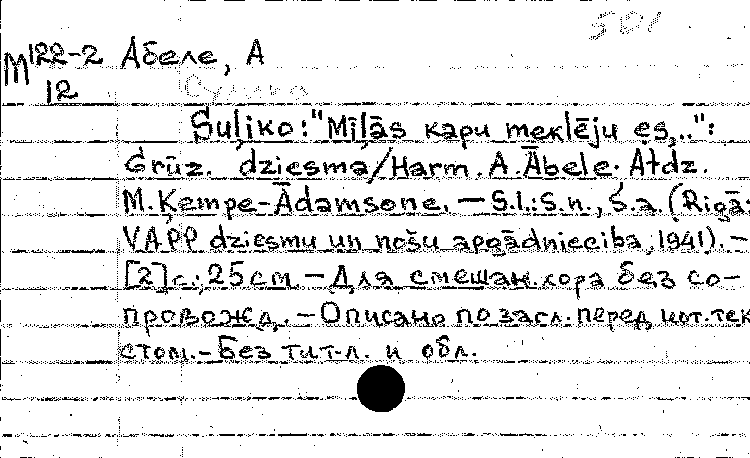 501
М122-2 Абеле, А
12 Сулико
Suļiko: "Mīļās kapu meklēju es,..":
Grūz. dziesma/Harm. A. Ābele. Atdz.
M. Ķempe-Ādamsone. — S.l.: S.n., S.a. (Rīgā:
VAPP dziesmu un nošu apgādniecība, 1941). —
[2] с.; 25 см. — Для смешан. хора без со-
провожд. — Описано по загл. перед нот. тек
стом. — Без тит. л. и обл.